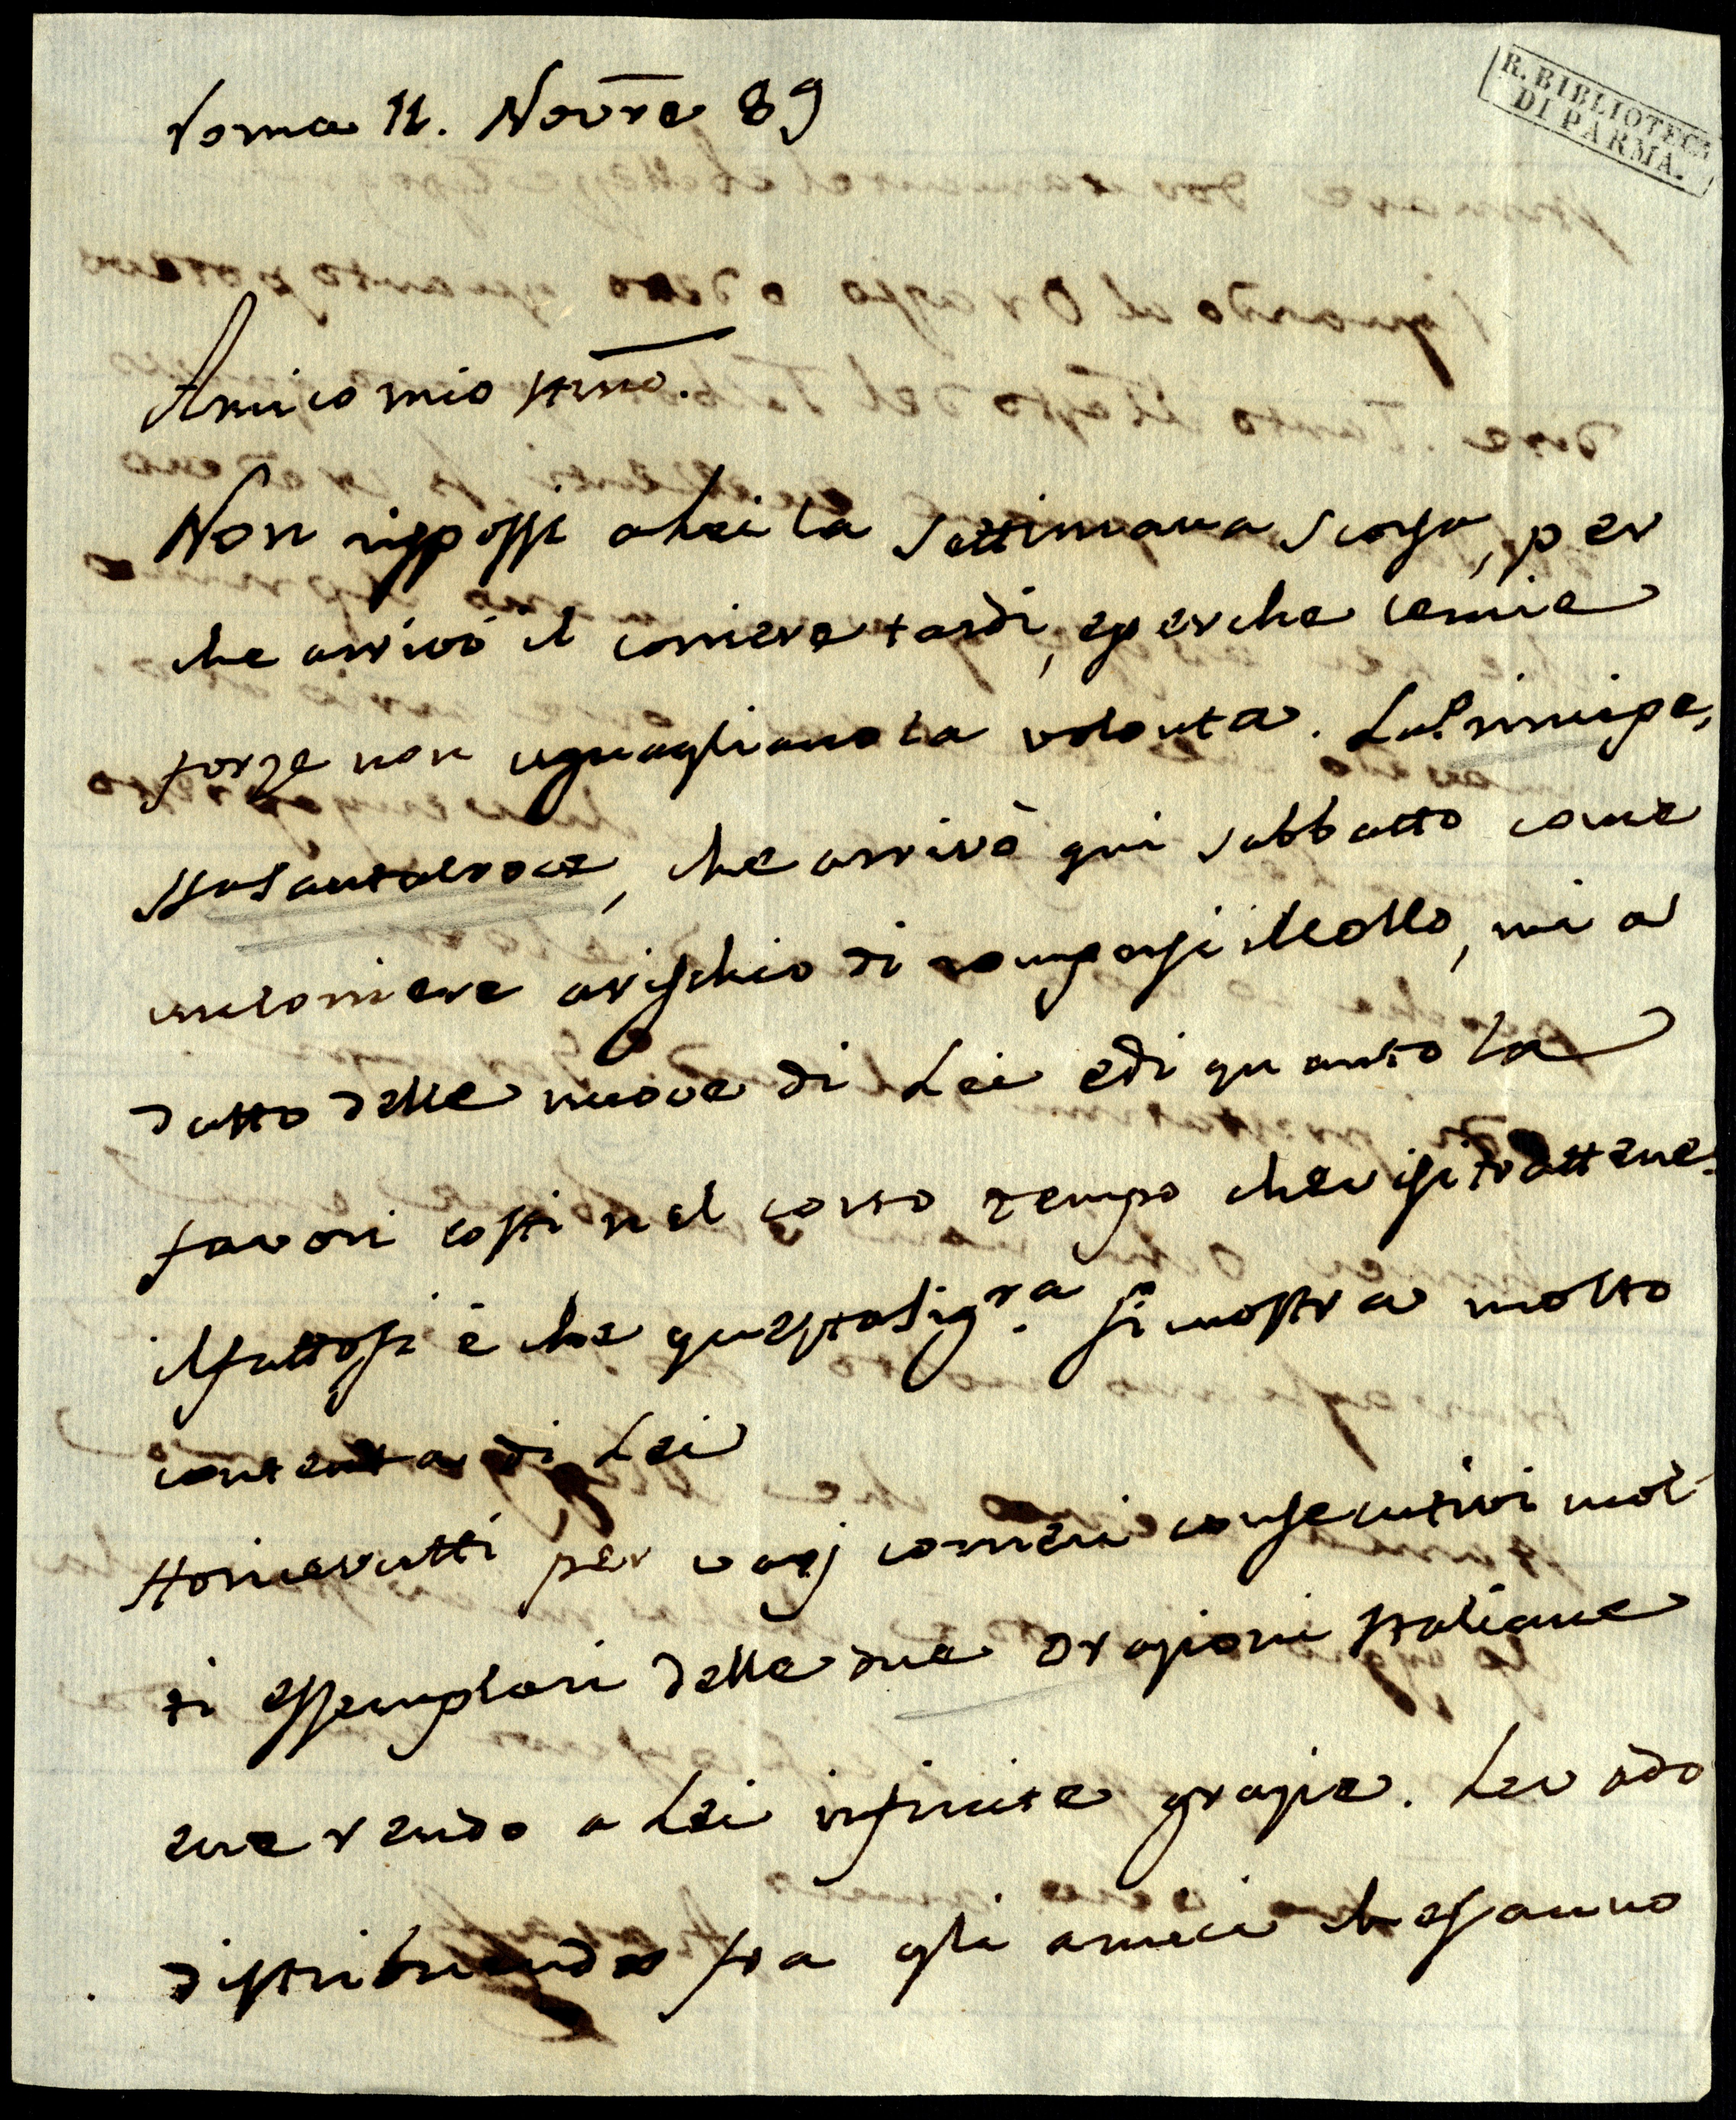 Roma 11. Novre 89
R. BIBLIOTECA
DI PARMA.
Amico mio stmo.
Non risposi a Lei la settimana scorsa, per
che arrivò il corriere tardi, e perche le mie
forze non uguagliano la volonta. La Principe,
ssa Santacroce, che arrivò qui sabbatto come
un corriere a rischio di rompersi il collo, mi a
datto delle nuove di Lei e di quanto la
favori costi nel corto tempo che vi si trattene.
il fatto si è che questa Sigra. si mostra molto
contenta di Lei
Ho ricevutti per varj corrieri consecutivi mol
ti essemplari delle due orazioni Italiane
e ne rendo a Lei infinite grazie. Le vado
distribuendo fra gli amici che sanno